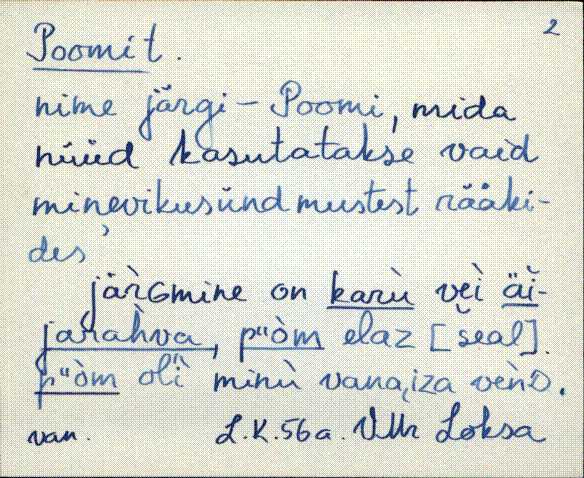 2
Poomit.
nime järgi – Poomi, mida
nüüd kasutatakse vaid
minevikusündmustest rääki-
des
järGmine on karù vèi äi-
jarahva, pᵘòm elaz [seal].
pᵘòm olì minù vana,iza vènD.
van. L.K.56a. VMr Loksa